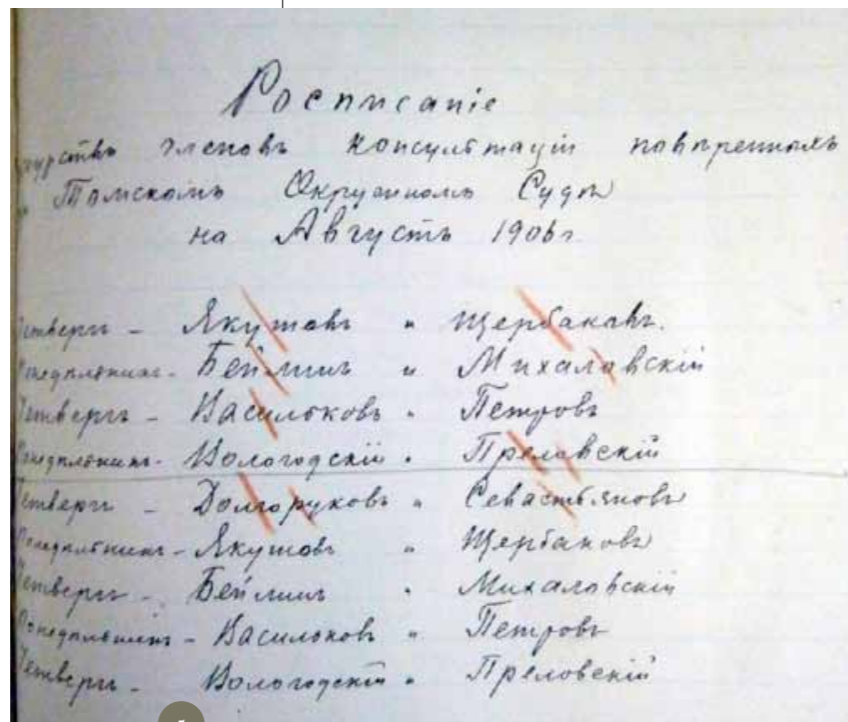 Росписаніе
членовъ консультаціи повѣренныхъ
Томскомъ Окружномъ Судѣ
на Августъ 1906 г.
Четвергъ - Якушовъ и Щербаковъ.
Понедѣльникъ - Бейлинъ и Михаловскій
Четвергъ - Васильковъ и Петровъ
Понедѣльникъ - Вологодскій и Преловскій
Четвергъ - Долгоруковъ и Севастьяновъ
Понедѣльникъ - Якушовъ и Щербаковъ
Четвергъ - Бейлинъ и Михаловскій
Понедѣльникъ - Васильковъ и Петровъ
Четвергъ - Вологодскій и Преловскій